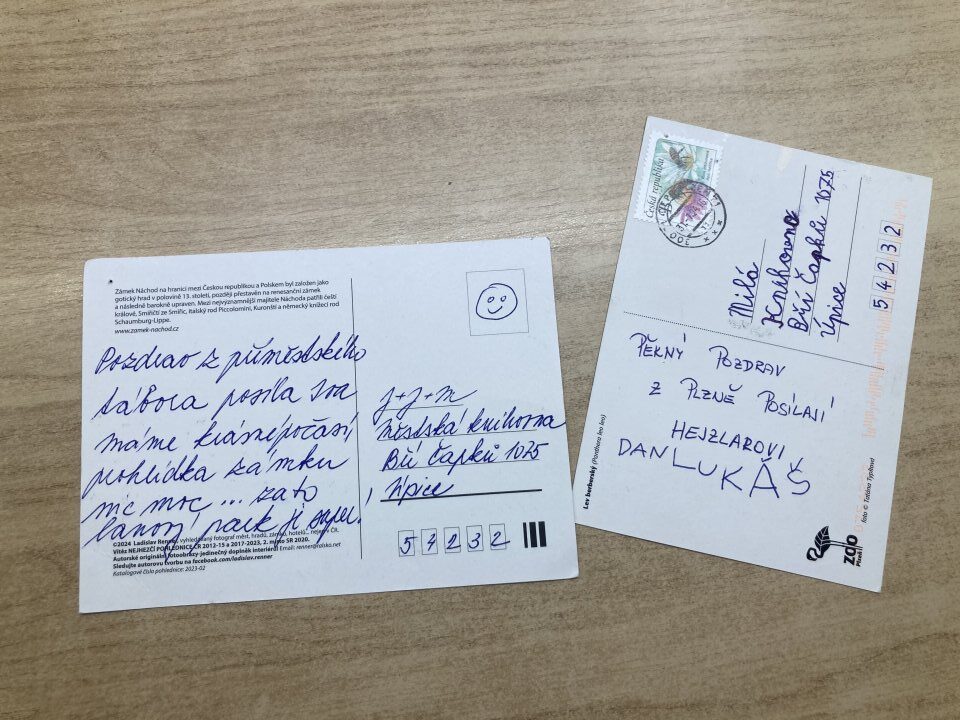 Zámek Náchod na hranici mezi Českou republikou a Polskem byl založen jako
gotický hrad v polovině 13. století, později přestavěn na renesanční zámek
a následně barokně upraven. Mezi nejvýznamnější majitele Náchoda patřili čeští
králové, Smiřičtí ze Smiřic, italský rod Piccolomini, Kuronští a německý knížecí rod
Schaumburg-Lippe.
www.zamek-nachod.cz
Pozdrav z příměstského
tábora posílá
máme krásné počasí,
prohlídka zámku
nic moc... zato
lanový park je super!
©2024 Ladislav Renner, vyhledávaný fotograf měst, hradů, zámků, hotelů... nejen v ČR.
Vítěz NEJHEZČÍ POHLEDNICE ČR 2012-15 a 2017-2023, 2. místo SR 2020.
Autorské originální fotoobrazy-jedinečný doplněk interiérů! Email: renner@raisko.net
Sledujte autorovu tvorbu na facebook.com/ladislav.renner
Katalogové číslo pohlednice: 2023-02
J+J+M
Městská knihovna
Bří Čapků 1075
Úpice
54232
Česká republika
Milá
Knihovno
Bří Čapků 1075
Úpice
54232
PĚKNÝ POZDRAV
Z PLZNĚ POSÍLAJÍ
HEJZLAROVI,
DAN LUKÁŠ
Lev berberský (Panthera leo leo)
foto © Taťána Typltová
zoo
Plzeň